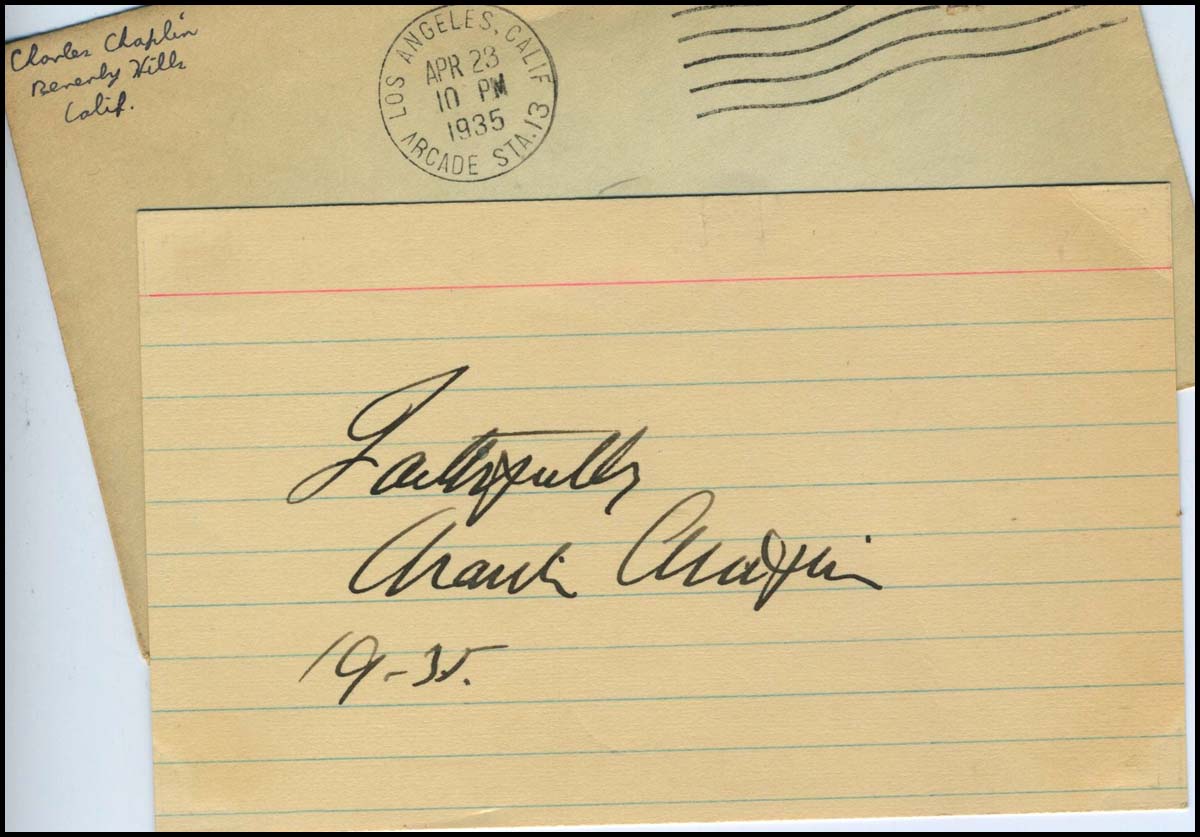 Charles Chaplin
Beverly Hills
Calif.
LOS ANGELES, CALIF
APR 23
10 PM
1935
ARCADE STA. 13
Faithfully
Charlie Chaplin
19-35.